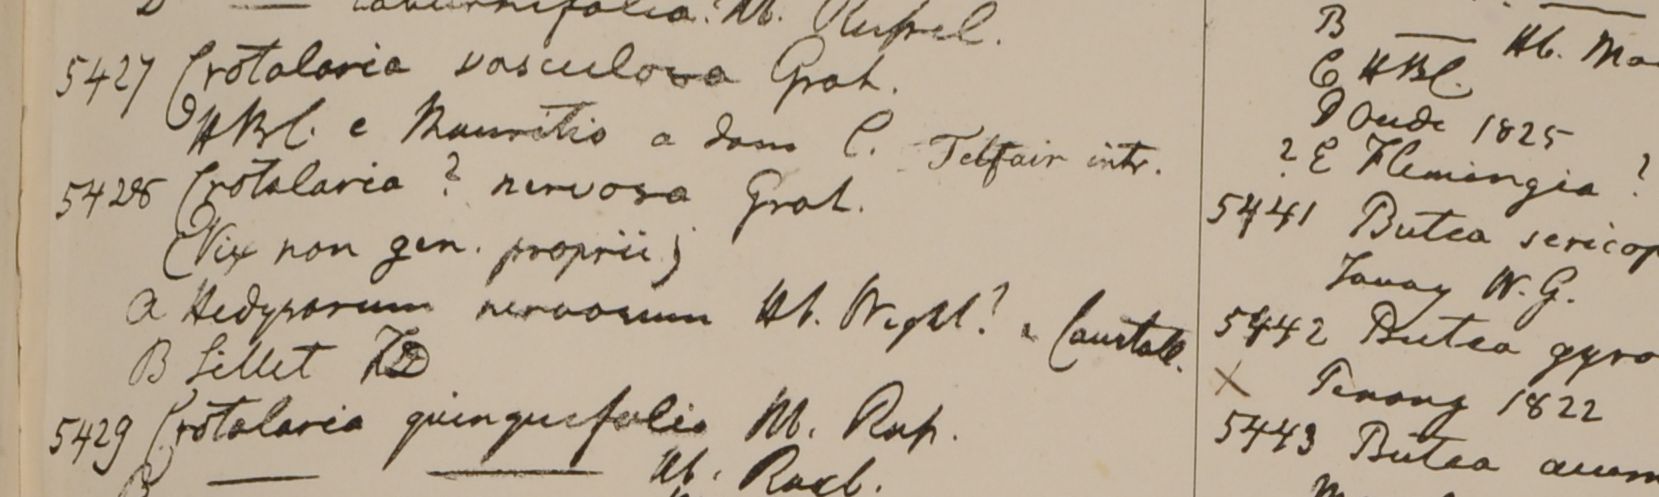 D — laburnifolia. Hb. Ruprel.
5427 Crotalaria vasculosa Grah.
HBC. e Mauritio a dom C. Telfair intr.
5428 Crotalaria ? nervosa Grah.
(Vix non gen. proprii)
a Hedysarum nervosum Hb. Wight?
B Sillet
5429 Crotalaria quinquefolia Hb. Rup.
B — — Hb. Roxb.
B — Hb. Ma
C HBC.
D Oude 1825
? E Flemingia ?
5441 Butea sericop
Tavay W. G.
5442 Butea gyro
X Penang 1822
5443 Butea acum